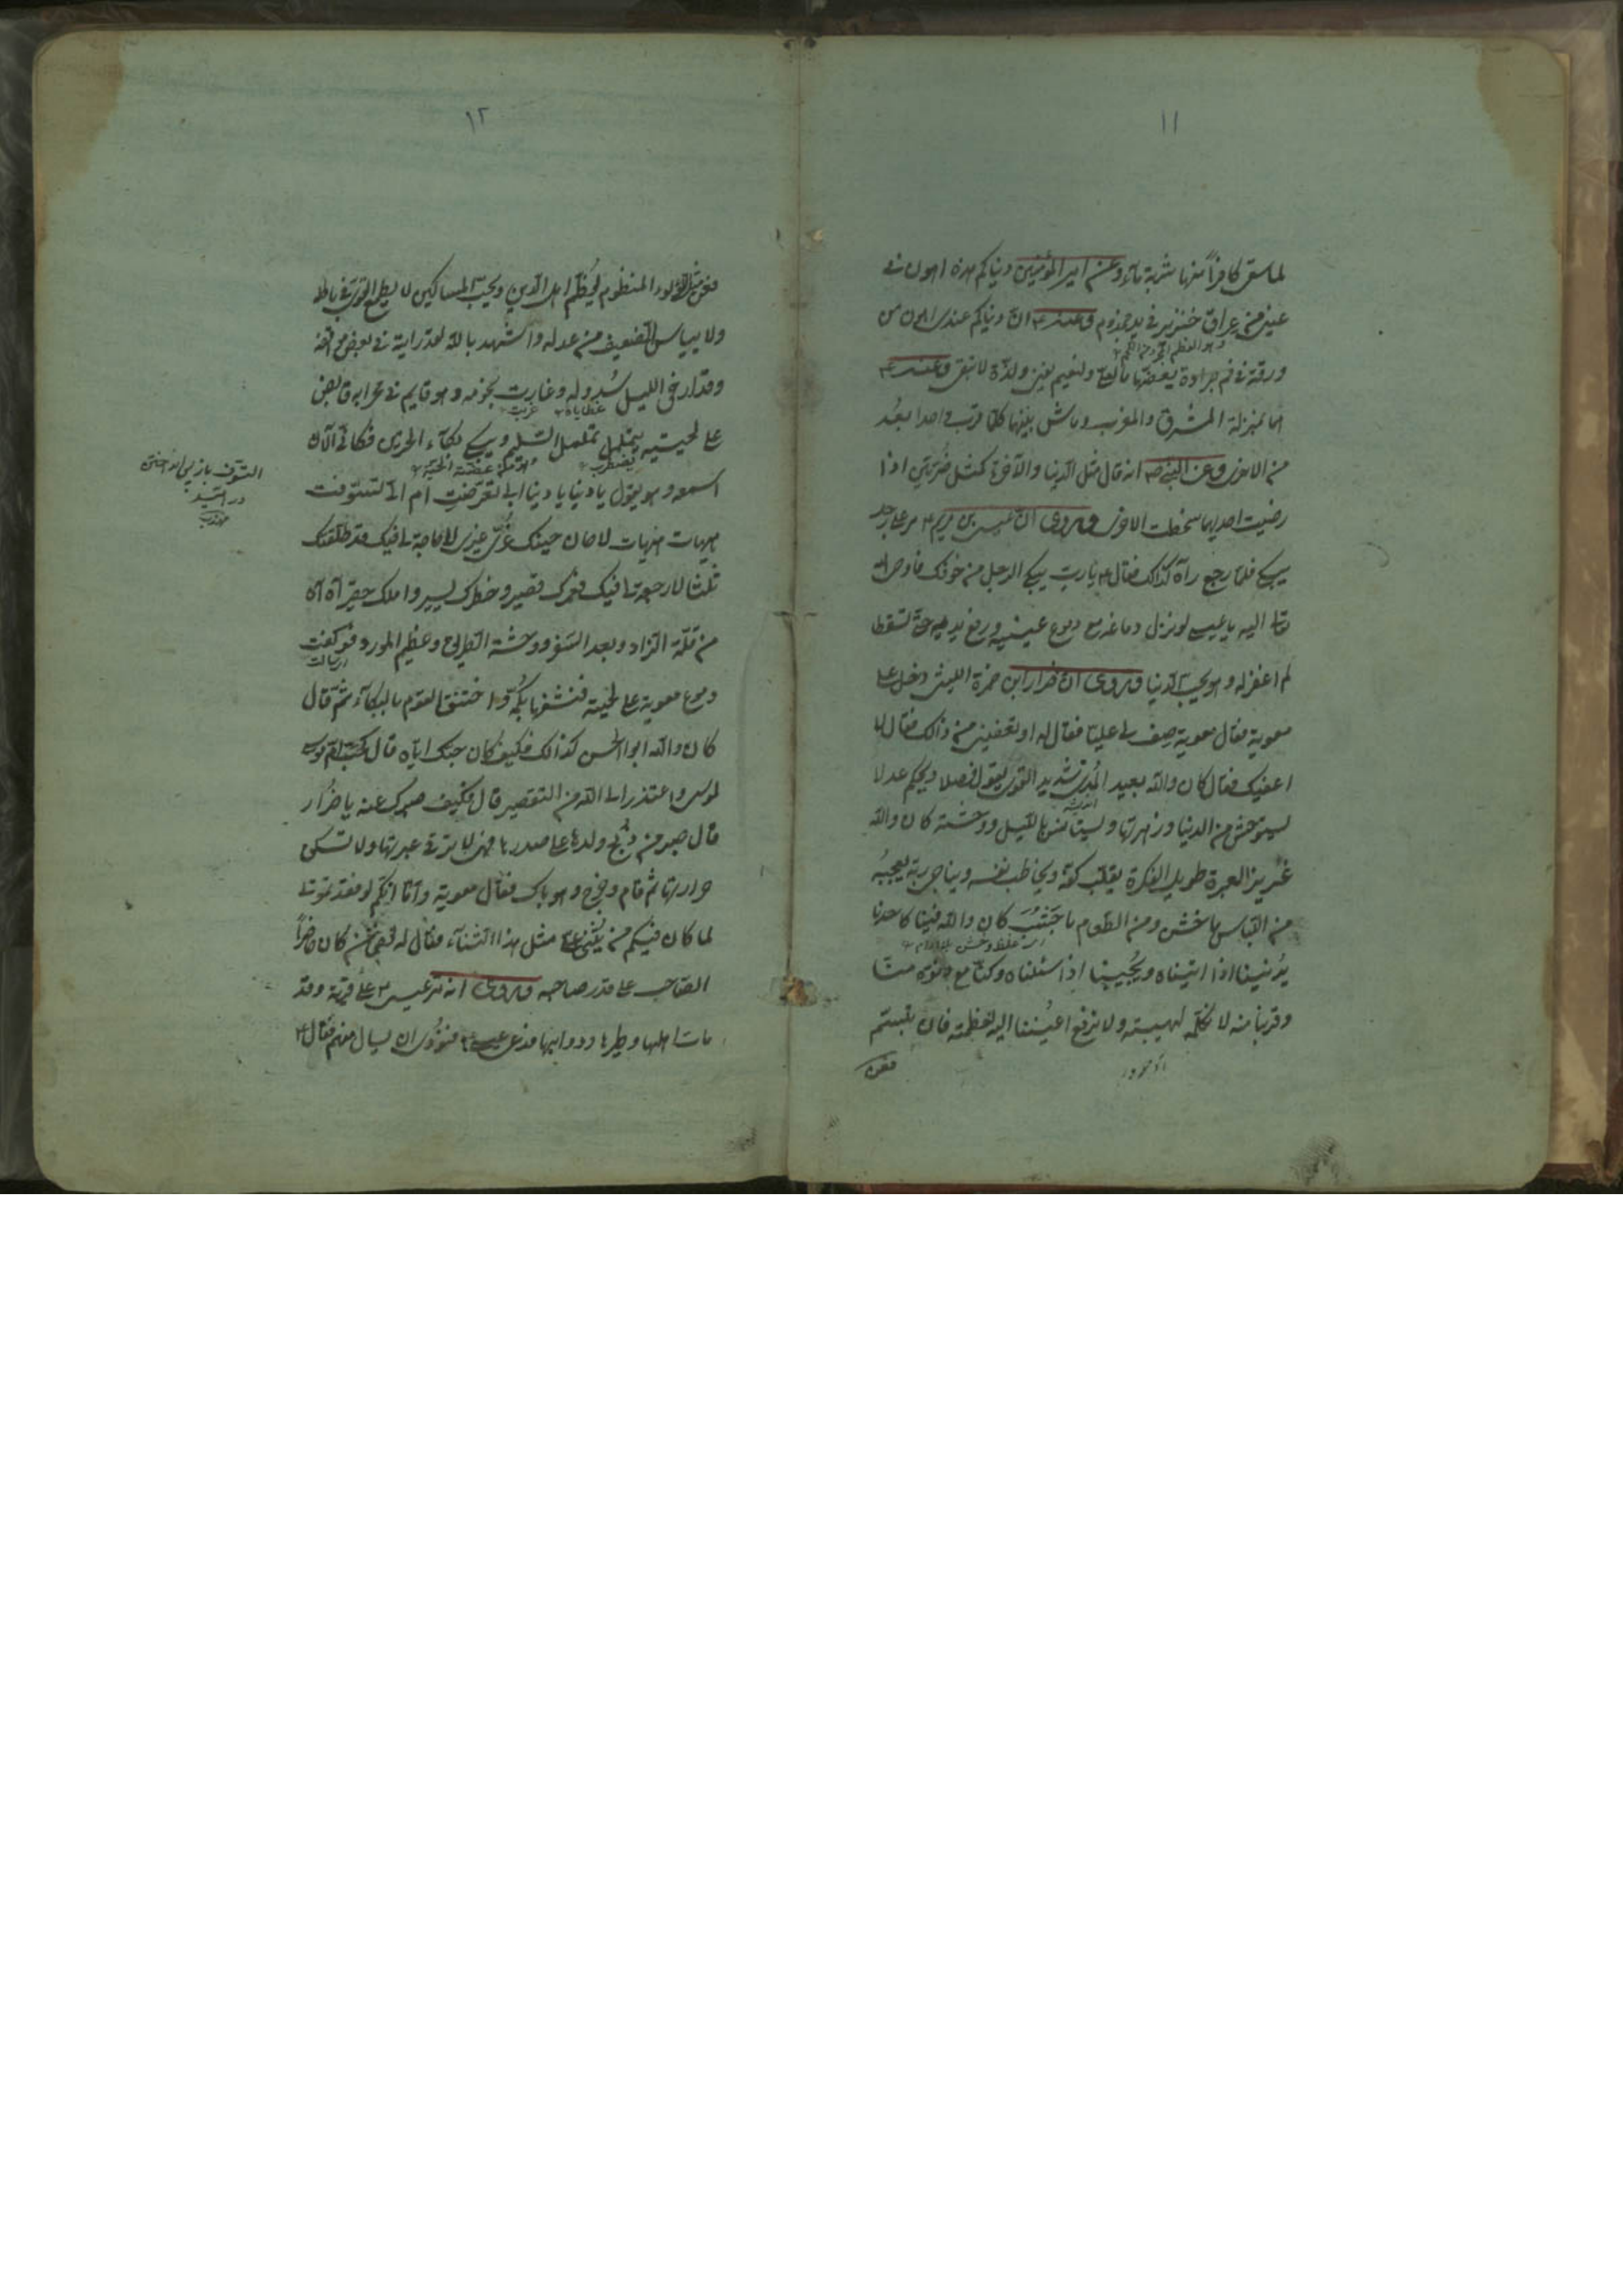 ١١
لما سقى كافراً منها شربة ماء وعن امير المؤمنين دنياكم هذه اهون في
عيني من عراق خنزير في يد مجذوم وعنه ع ان دنياكم عندي اهون من
ورقة في فم جرادة يقضمها ما لعلي ولنعيم يفنى ولذة لا تبقى وعنه ع
هما بمنزلة المشرق والمغرب وماش بينهما كلما قرب من احدهما بعد
من الاخرى وعن النبي ص انه قال مثل الدنيا والآخرة كمثل ضرتين اذا
رضيت احديهما سخطت الاخرى وروى ان عيسى بن مريم ع مر على رجل
يبكي فلما رجع رآه كذلك فقال ع يا رب يبكي الرجل من خوفك فاوحى الله
تعالى اليه يا عيسى لو نزل دماغه مع دموع عينيه ورفع يديه حتى تسقطا
لم اغفر له وهو يحب الدنيا وروى ان ضرار ابن ضمرة الليثي دخل على
معوية فقال معوية صف لي عليا فقال له او تعفيني من ذالك فقال لا
اعفيك فقال كان والله بعيد المدى شديد القوى يقول فصلا ويحكم عدلا
يستوحش من الدنيا وزهرتها ويستانس بالليل ووحشته كان والله
غزير العبرة طويل الفكرة يقلب كفه ويخاطب نفسه ويناجي ربه يعجبه
من اللباس ما خشن ومن الطعام ما جشب كان والله فينا كاحدنا
يدنينا اذا اتيناه ويجيبنا اذا سئلناه وكنا مع دنوه منا
وقربنا منه لا نكلمه لهيبته ولا نرفع اعيننا اليه لعظمته فان تبسم
فعن
١٢
فعن مثل اللؤلوء المنظوم يعظم اهل الدين ويحب المساكين لا يطمع القوي في باطله
ولا ييأس الضعيف من عدله واشهد بالله لقد رايته في بعض مواقفه
وقد ارخى الليل سدوله وغارت نجومه وهو قايم في محرابه قابض
على لحيته يتململ تململ السليم ويبكي بكاء الحزين فكاني الآن
يضطرب
اسمعه وهو يقول يا دنيا يا دنيا ابي تعرضت ام الي تشوقت
هيهات هيهات لا حان حينك غري غيري لا حاجة لي فيك قد طلقتك
ثلثا لا رجعة لي فيك فعمرك قصير وخطرك يسير واملك حقير آه آه
من قلة الزاد وبعد السفر ووحشة الطريق وعظيم المورد فوكفت
دموع معوية على لحيته فنشفها بكمه واختنق القوم بالبكاء ثم قال
كان والله ابو الحسن كذالك فكيف كان حبك اياه قال كحب ام موسى
لموسى واعتذر الى الله من التقصير قال فكيف صبرك عنه يا ضرار
قال صبر من ذبح ولدها على صدرها فهي لا ترقى عبرتها ولا تسكن
حرارتها ثم قام وخرج وهو باك فقال معوية واما انكم لو فقدتموني
لما كان فيكم من يثني علي مثل هذا الثناء فقال له بعض من كان حاضراً
الصاحب على قدر صاحبه وروى انه مر عيسى ع على قرية وقد
مات اهلها وطيرها ودوابها